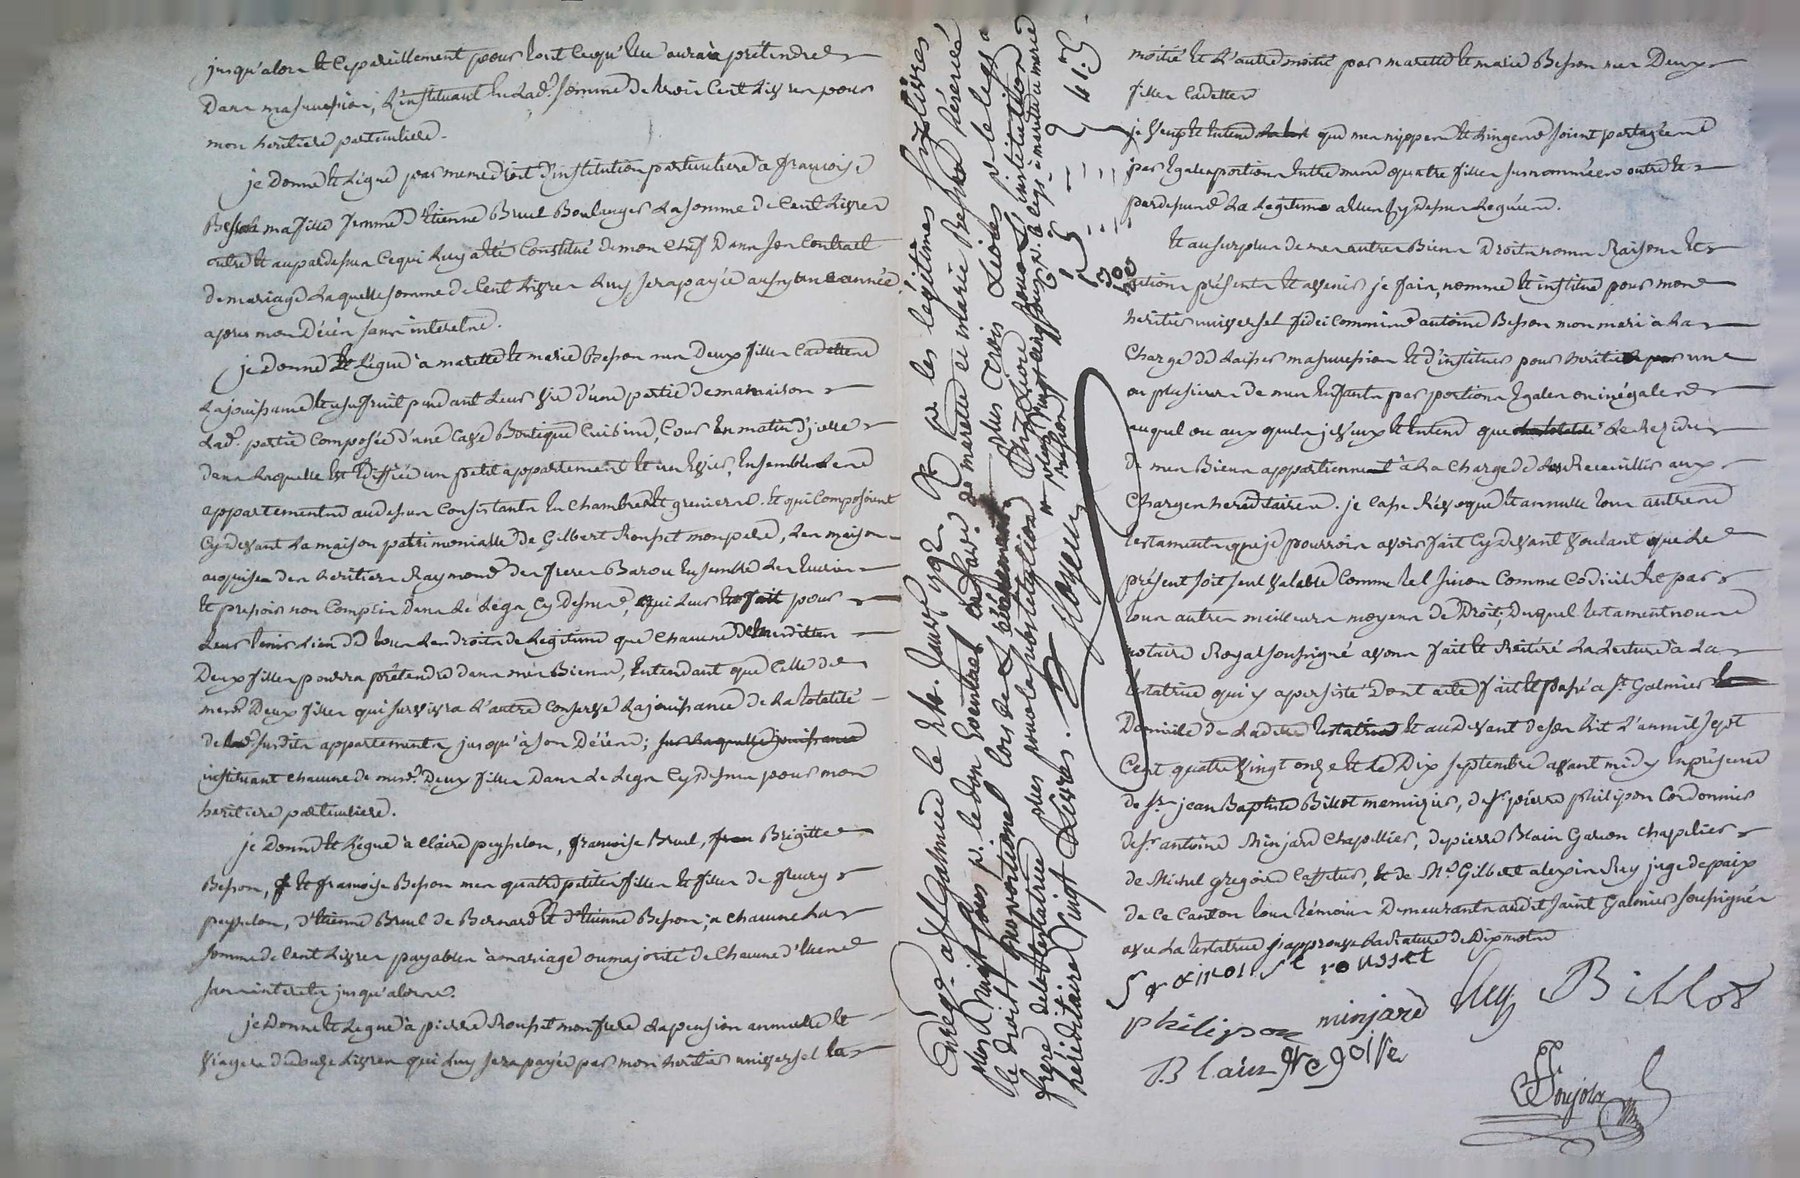 jusqu'alors et ce pareillement pour tout ce qu'elle aura à prétendre
dans ma succession, l'instituant en lad.e somme de trois cent livres pour
mon heritiere particuliere.
je donne et legue par meme droit d'institution particuliere à françoise
Besson ma fille femme d'Etienne Bruel Boulanger la somme de cent livres
outre et au pardessus ce qui luy a été constitué de mon chef dans son contrat
de mariage laquelle somme de cent livres luy sera payée année
apres mon décès sans interetre.
je donne et legue à marette et marie Besson mes deux filles cadettes
la jouissance et usufruit pendant leurs vie d'une partie de ma maison
lad.e partie composée d'une cave Boutique cuisine, cour en matin d'icelle
dans laquelle est édiffié un petit appartement et un évier, ensemble les
appartements au dessus consistants en chambres et greniers. et qui composoient
cy devant la maison patrimonialle de Gilbert Rousset mon pere, les maisons
acquises des heritiers Raymond des freres Barou ensemble les écuries
et pressoir non compris dans le légs cy dessus, qui leur est fait pour
leurs tenir lieu de tous les droits de légitime que chacune de mesdittes
deux filles pourra prétendre dans mes Biens, entendant que celle de
mesd. deux filles qui survivra l'autre conserve la jouissance de la totalité
desd. susdits appartements jusqu'à son décès; sur laquelle jouissance
instituant chacune de mesd. deux filles dans le legs cy dessus pour mon
heritiere particuliere.
je donne et legue à claire peysselon, françoise Bruel, Brigitte
Besson, et françoise Besson mes quatre petites filles et filles de fleury
peysselon, d'Etienne Bruel de Bernard et d'Etienne Besson; à chacune la
somme de cent livres payables à mariage ou majorité de chacune d'elles
sans interets jusqu'alors.
je donne et legue à pierre Rousset mon frere la pension annuelle et
viagere de douze livres qui luy sera payée par mon heritier universel la
Enreg.é à St Galmier le 24. Janv.r 1792. R p.r les legitimes huit livres
plus vingt sous p. le don éventuel en faveur de marette et marie Besson réservé
le droit proportionel lors de l'événement plus trois livres p. le legs à
frere de la testatrice plus pour la substitution sous l'institution
héréditaire Vingt livres. Noyeux
moitié et l'autre moitié par marette et marie Besson mes deux
filles cadettes
je veux et entend que mes nippes et linges soient partagés
par egale portions entre mes quatre filles susnommées outre et
pardessus la légitime à elles cy dessus leguée.
Et au surplus de mes autres Biens droits noms Raisons et
actions présents et avenir je fais, nomme et institue pour mon
heritier universel fideicommis antoine Besson mon mari à la
charge de laisser ma succession et d'instituer pour heritier une
ou plusieurs de mes enfants par portions egales ou inégales
auquel ou auxquels je veux et entend que le résidu
de mes Biens appartiennent à la charge de les recueillir aux
charges hereditaires. je casse révoque et annulle tous autres
testaments que je pourrois avoir fait cy devant voulant que le
présent soit seul valable comme tel sinon comme codicile et par
tous autres meilleurs moyens de droit, duquel testament nous
notaire Royal soussigné avons fait et réitéré la lecture à la
testatrice qui y a persisté dont acte fait et passé à St Galmier
domicile de ladite testatrice et au devant de son lit l'an mil sept
cent quatre vingt onze et le dix septembre avant midy en présence
de Sr jean Baptiste Billot menuizier, de Sr pierre philipon cordonnier
de Sr antoine Minjard chapellier, de pierre Blain garçon chapelier
de Michel gregoire caffetier, et de Me Gilbert alexis Ruy juge de paix
de ce canton tous témoins demeurants audit saint Galmier soussignés
avec la testatrice j'approuve la rature de dix mots
françoise rousset
philipon minjard Ruy Billot
Blain gregoire
Poujolx